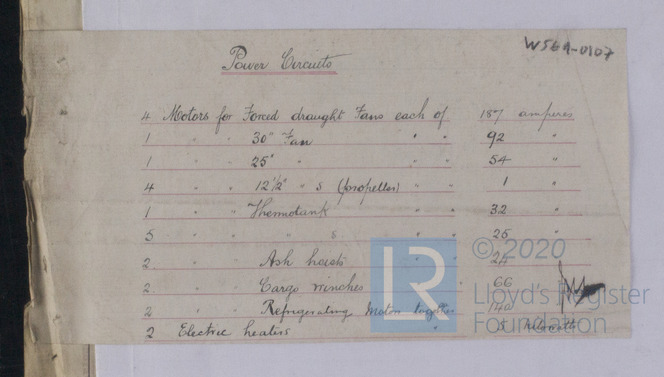 W564-0107
Power Circuits
4 Motors for Forced draught Fans each of 187 amperes
1 " " 30" Fan " " 92 "
1 " " 25" " " " 54 "
4 " " 12½" " s (propeller) " " 1 "
1 " " Thermotank " " 32 "
5 " " " s " " 25 "
2 " " Ash hoists 24
2 " " Cargo winches 66
2 " " Refrigerating Motor together 140
2 Electric heaters " 5 kilowatts
LR
© 2020
Lloyd's Register
Foundation